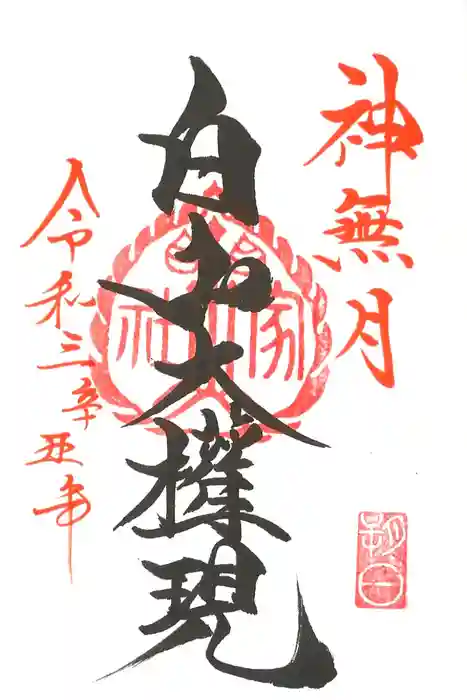 神無月
白山大権現
令和三辛丑年
朔日